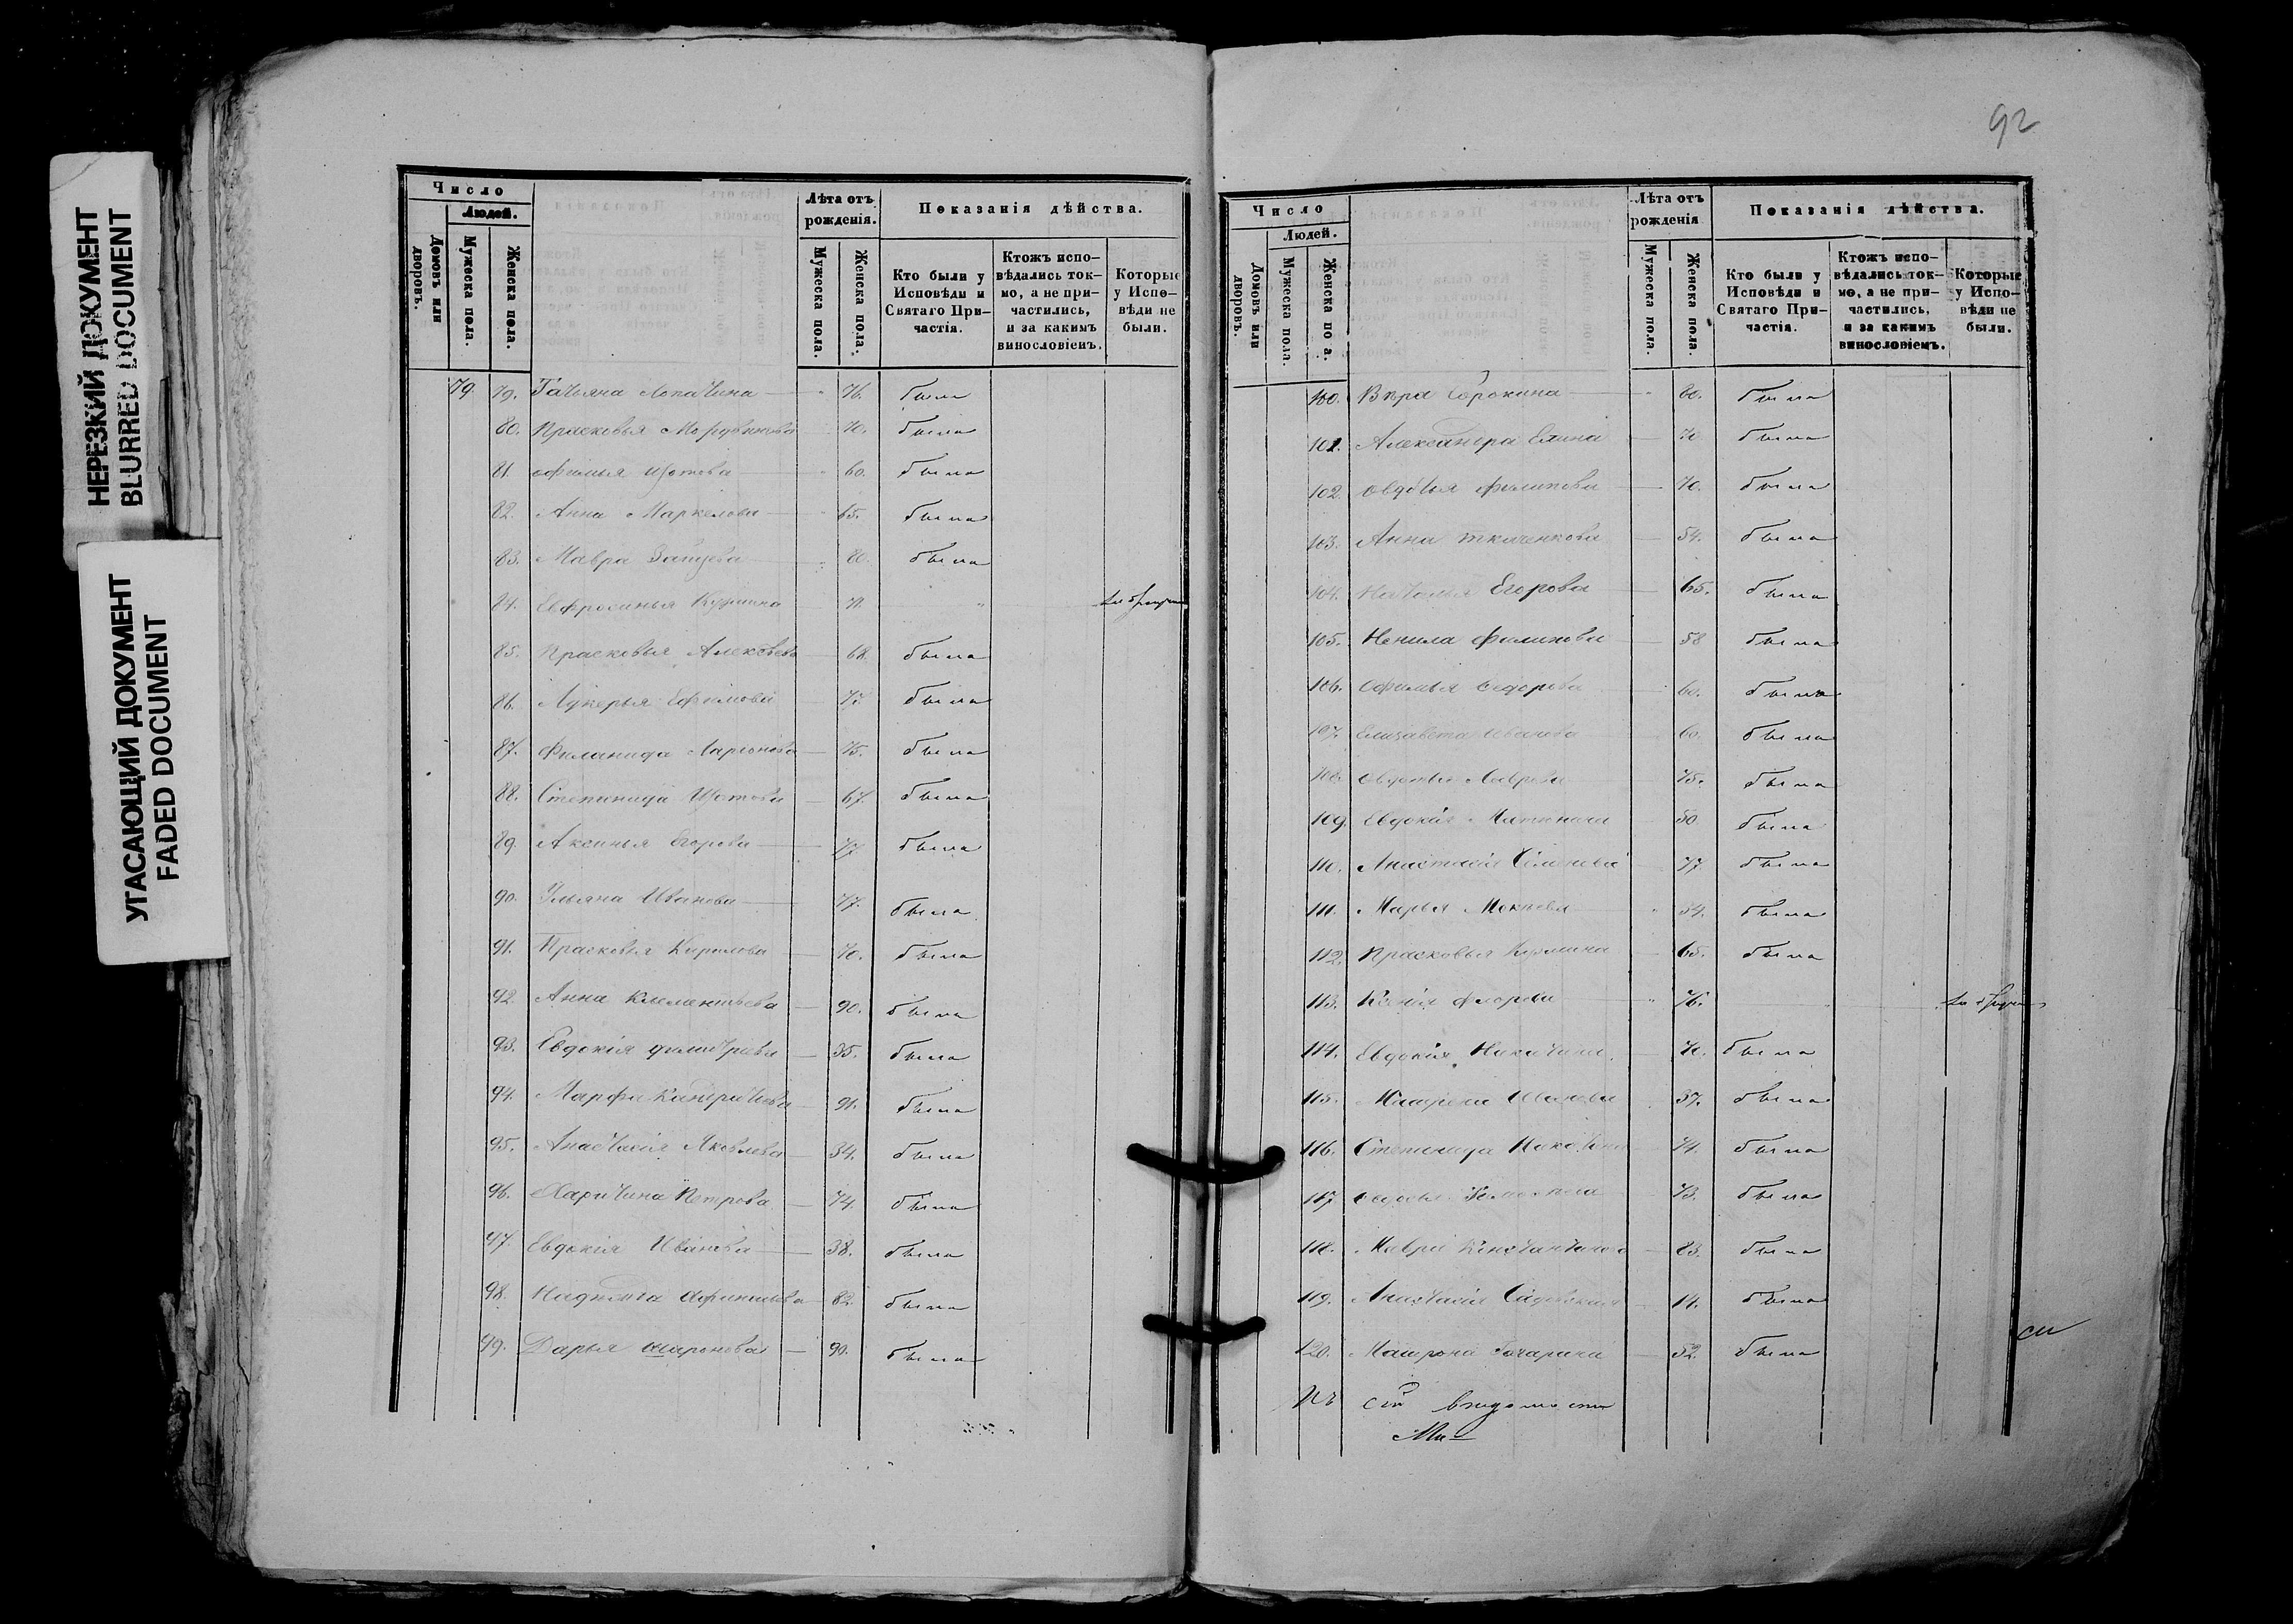 НЕРЕЗКИЙ ДОКУМЕНТ
BLURRED DOCUMENT
УГАСАЮЩИЙ ДОКУМЕНТ
FADED DOCUMENT
Число
Людей.
Домовъ или дворовъ.
Мужеска пола.
Женска пола.
Лѣта отъ рожденія.
Мужеска пола.
Женска пола.
Показанія дѣйства.
Кто были у Исповѣди и Святаго Причастія.
Ктожъ исповѣдались токмо, а не причастились, и за какимъ винословіемъ.
Которые у Исповѣди не были.
79. 79. Татьяна Лопатина 76. была
80. Прасковья Мордвинова 70. была
81. Афимья Щотова 60. была
82. Анна Маркелова 65. была
83. Мавра Зайцева 80. была
84. Евфросинья Кузмина 71.
85. Прасковья Алексѣева 68. была
86. Лукерья Ефимова 77 была
87. Филанида Ларіонова 75. была
88. Степанида Щотова 67. была
89. Аксинья Егорова 77 была
90. Ульяна Иванова 77. была
91. Прасковья Кирилова 70. была
92. Анна Клементьева 90. была
93. Евдокія Димитріева 35. была
94. Марфа Кандратьева 91. была
95. Анастасія Яковлева 34. была
96. Харитина Петрова 74. была
97. Евдокія Иванова 38. была
98. Надежда 82. была
99. Дарья 90. была
92
Число
Людей.
Домовъ или дворовъ.
Мужеска пола
Женска по а.
Лѣта отъ рожденія
Мужеска пола.
Женска пола.
Показанія дѣйства.
Кто были у Исповѣди и Святаго Причастія.
Ктожъ исповѣдались токмо, а не причастились, и за какимъ винословіемъ.
Которые у Исповѣди не были.
100. Вѣра Сорокина 80. была
101. Александра Елина 70 была
102. Овдотья Филипова 70. была
103. Анна Ткаченкова 54. была
104. Наталья Егорова 65. была
105. Ненила Филипова 58 была
106. Офимья Федорова 60. была
107. Елизавета Иванова 60. была
108. 75. была
109. Евдокія 50 была
110. Анастасія Семенова 77. была
111. Марья 54. была
112. Прасковья Кузмина 65. была
113. Ксенія Флорова 76.
114. Евдокія Никитина 70. была
115. 37. была
116. Степанида Никитина 74. была
117. 73. была
118. Мавра Константинова 83. была
119. Анастасія Садовская 14. была
120. Матрона Гочарина 52. была
Къ сей вѣдомости